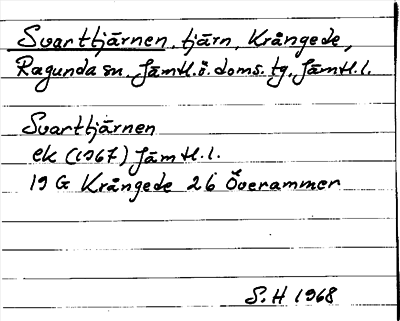 Svarttjärnen, tjärn, Krångede,
Ragunda sn, Jämtl.ö. doms. tg., Jämtl. l.
Svarttjärnen
ek (1967) Jämtl. l.
19 G Krångede 26 Överammer
S.H 1968